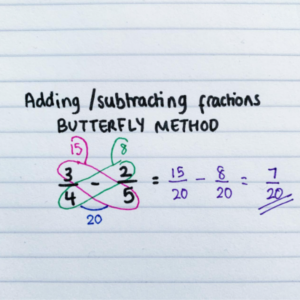 Adding/subtracting fractions
BUTTERFLY METHOD
15 8
3/4 - 2/5 = 15/20 - 8/20 = 7/20
20